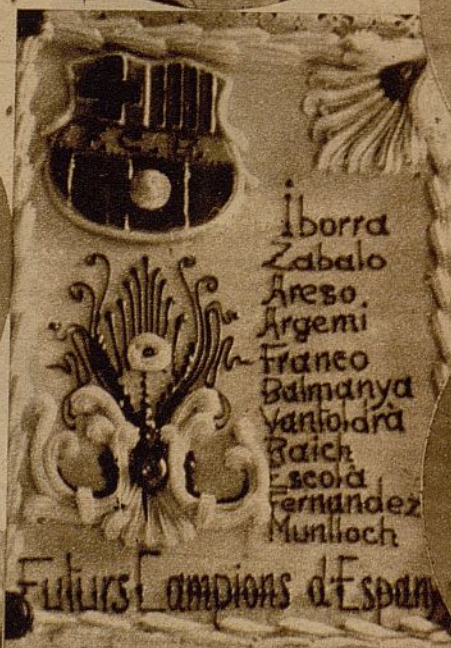 Iborra
Zabalo
Areso
Argemi
Franco
Balmanya
Vantoldrà
Raich
Escolà
Fernandez
Munlloch
Futurs Campions d'Espany